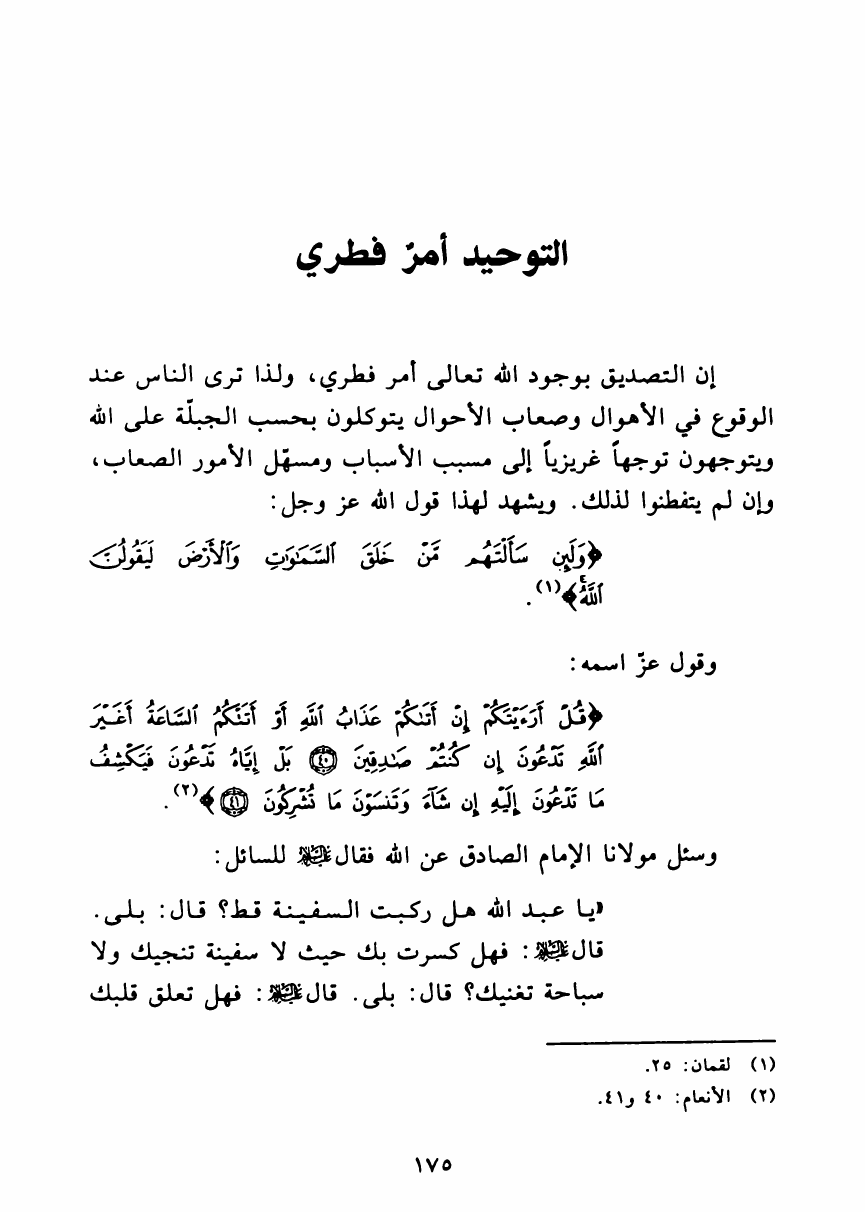 التوحيد أمرٌ فطري
إن التصديق بوجود الله تعالى أمر فطري، ولذا ترى الناس عند
الوقوع في الأهوال وصعاب الأحوال يتوكلون بحسب الجبلّة على الله
ويتوجهون توجهاً غريزياً إلى مسبب الأسباب ومسهّل الأمور الصعاب،
وإن لم يتفطنوا لذلك. ويشهد لهذا قول الله عز وجل:
﴿وَلَئِن سَأَلْتَهُم مَّنْ خَلَقَ ٱلسَّمَٰوَٰتِ وَٱلْأَرْضَ لَيَقُولُنَّ
ٱللَّهُۚ﴾(١).
وقول عزّ اسمه:
﴿قُلْ أَرَءَيْتَكُمْ إِنْ أَتَىٰكُمْ عَذَابُ ٱللَّهِ أَوْ أَتَتْكُمُ ٱلسَّاعَةُ أَغَيْرَ
ٱللَّهِ تَدْعُونَ إِن كُنتُمْ صَٰدِقِينَ ٤٠ بَلْ إِيَّاهُ تَدْعُونَ فَيَكْشِفُ
مَا تَدْعُونَ إِلَيْهِ إِن شَآءَ وَتَنسَوْنَ مَا تُشْرِكُونَ ٤١﴾(٢).
وسئل مولانا الإمام الصادق عن الله فقال عليه السلام للسائل:
«يا عبد الله هل ركبت السفينة قط؟ قال: بلى.
قال عليه السلام: فهل كسرت بك حيث لا سفينة تنجيك ولا
سباحة تغنيك؟ قال: بلى. قال عليه السلام: فهل تعلق قلبك
(١) لقمان: ٢٥.
(٢) الأنعام: ٤٠ و٤١.
١٧٥